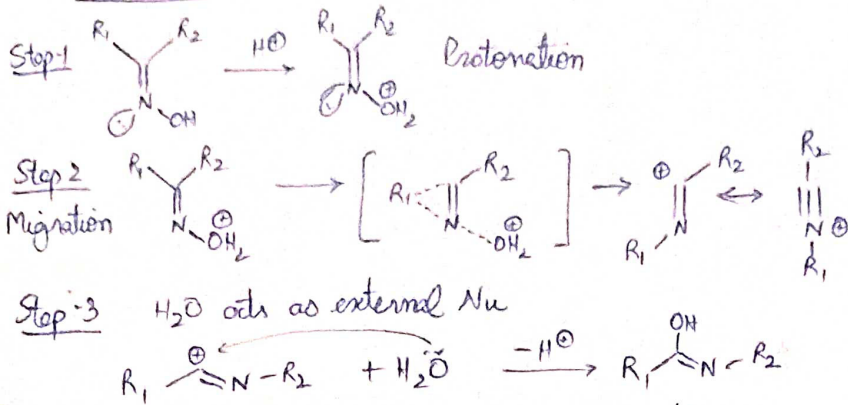 Step-1 R₁ R₂ N OH H⊕ R₁ R₂ N ⊕ OH₂ Protonation
Step 2 R₁ R₂ N ⊕ OH₂ [ R₁ R₂ N ⊕ OH₂ ] ⊕ R₂ R₁ N R₂ N ⊕ R₁
Migration
Step-3 H₂O acts as external Nu
R₁ ⊕ N-R₂ + H₂Ö -H⊕ R₁ OH N-R₂